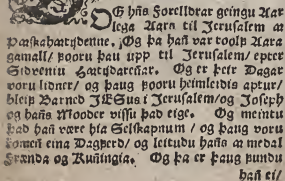 OG hñs Forelldrar geingu Aar
lega Aara til Jerusalem æ
Pæskahætijdenne. Og þa hañ var toolf Aara
gamall/ fooru þau upp til Jerusalem/ epter
Sidveniu Hætijdareñar. Og er þeir Dagar
voru lidner/ og þaug fooru heimleidis aptur/
bleif Barned JESus i Jerusalem/og Joseph
og hañs Mooder vissu þad eige. Og meintu
þad hañ være hia Selskapnum / og þaug voru
komeñ eina Dagferd/ og leitudu hañs æ medal
Frænda og Kuñingia. Og þa er þaug fundu
hañ ei/